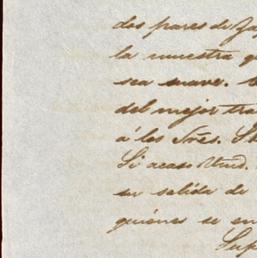 dos pares de Za
la muestra q
sea suave.
del mejor tra
á los Sres. S
Si acaso Umd.
su salida de
quienes se en
Sup